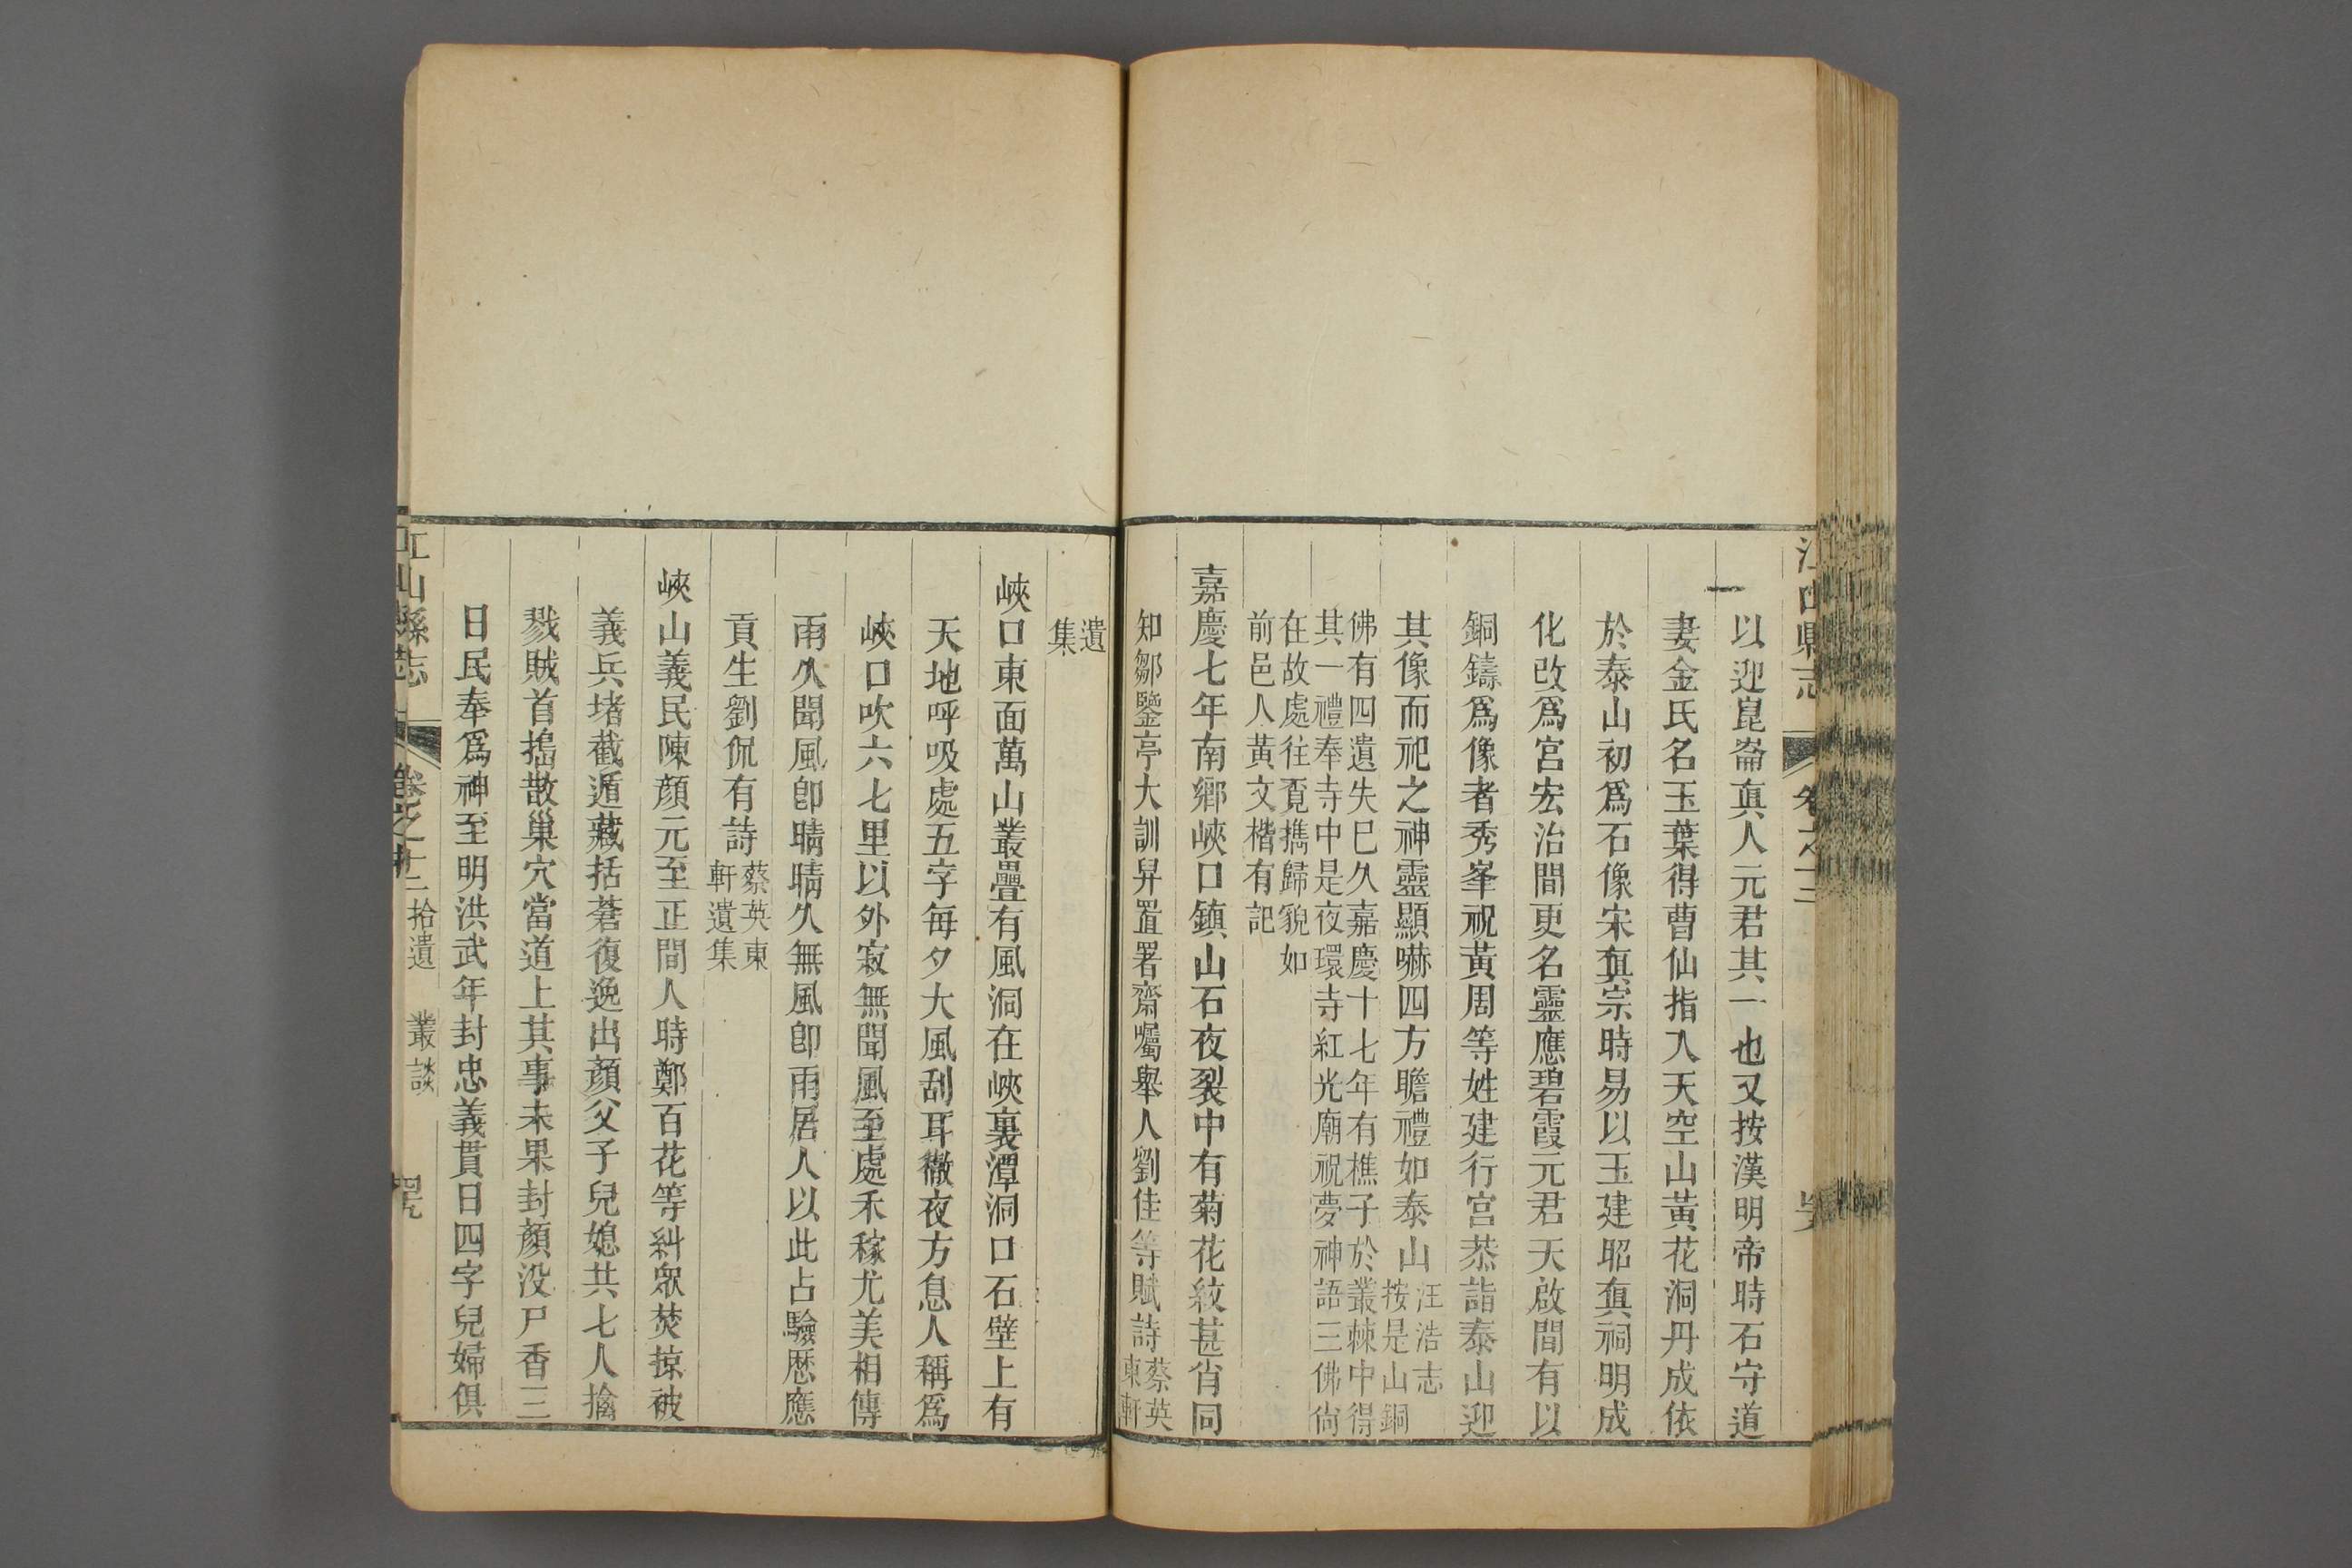 江山縣志 卷之十二
以迎崑崙眞人元君其一也又按漢明帝時石守道
妻金氏名玉葉得曹仙指入天空山黃花洞丹成依
於泰山初爲石像宋眞宗時易以玉建昭眞祠明成
化改爲宮宏治間更名靈應碧霞元君天啟間有以
銅鑄爲像者秀峯祝黃周等姓建行宮恭詣泰山迎
其像而祀之神靈顯嚇四方瞻禮如泰山汪浩志按是山銅
佛有四遺失巳久嘉慶十七年有樵子於叢棘中得
其一禮奉寺中是夜環寺紅光廟祝夢神語三佛尙
在故處往覔擕歸貌如
前邑人黃文楷有記
嘉慶七年南鄉峽口鎮山石夜裂中有菊花紋甚肖同
知鄒鑒亭大訓舁置署齋囑舉人劉佳等賦詩蔡英東軒
遺集
峽口東面萬山叢疊有風洞在峽裏潭洞口石壁上有
天地呼吸處五字每夕大風刮耳徹夜方息人稱爲
峽口吹六七里以外寂無聞風至處禾稼尤美相傳
雨久聞風卽晴晴久無風卽雨居人以此占驗歷應
貢生劉侃有詩蔡英東軒遺集
峽山義民陳顏元至正間人時鄭百花等糾眾焚掠被
義兵堵截遁藏括蒼復逸出顏父子兒媳共七人擒
戮賊首搗散巢穴當道上其事未果封顏沒尸香三
日民奉爲神至明洪武年封忠義貫日四字兒婦俱
江山縣志 卷之十二 拾遺 叢談